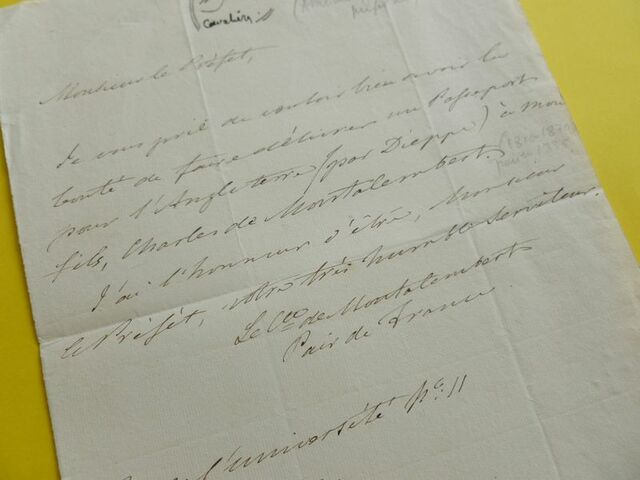 Cavalier
Monsieur le Préfet,
Je vous prie de vouloir bien avoir la
bonté de faire délivrer un Passeport
pour l'Angleterre (par Dieppe) à mon
fils, Charles de Montalembert.
J'ai l'honneur d'être, Monsieur
le Préfet, votre très humble serviteur.
Le Cte de Montalembert
Pair de France.
(1810-1870)
l'université no: 11